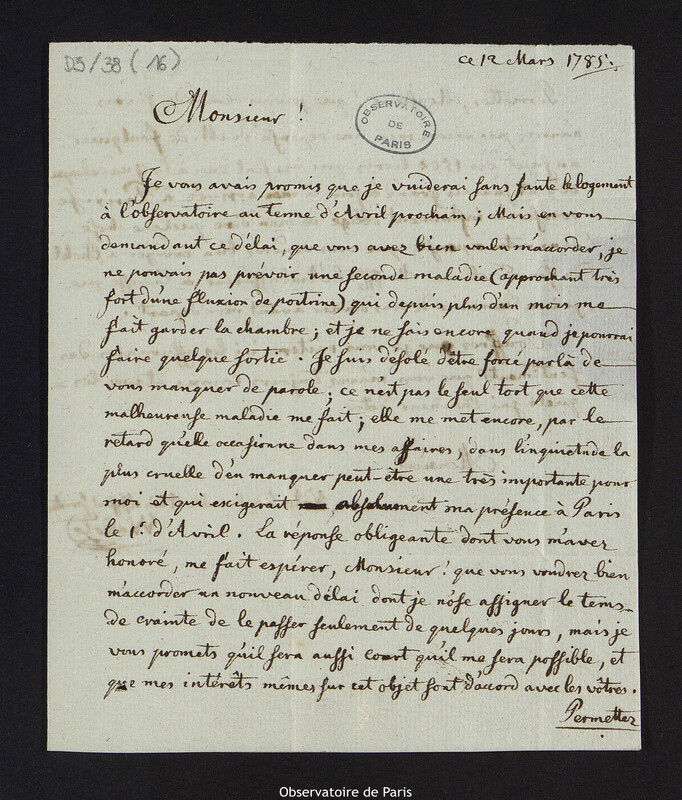 D5/38 (16)
ce 12 Mars 1785.
Monsieur!
OBSERVATOIRE
DE
PARIS
Je vous avais promis que je vuiderai sans faute le logement
à l'observatoire au terme d'Avril prochain; Mais en vous
demandant ce délai, que vous avez bien voulu m'accorder, je
ne pouvais pas prévoir une seconde maladie (approchant très
fort d'une fluxion de poitrine) qui depuis plus d'un mois me
fait garder la chambre; et je ne sais encore quand je pourrai
faire quelque sortie. Je suis désolé d'être forcé par là de
vous manquer de parole; ce n'est pas le seul tort que cette
malheureuse maladie me fait; elle me met encore, par le
retard qu'elle occasionne dans mes affaires, dans l'inquietude la
plus cruelle d'en manquer peut-être une très importante pour
moi et qui exigerait absolument ma présence à Paris
le 1.r d'Avril. La réponse obligeante dont vous m'avez
honoré, me fait espérer, Monsieur! que vous voudrez bien
m'accorder un nouveau délai dont je n'ose assigner le tems
de crainte de le passer seulement de quelques jours, mais je
vous promets qu'il sera aussi court qu'il me sera possible, et
que mes intérêts mêmes sur cet objet sont d'accord avec les vôtres.
Permettez
Observatoire de Paris